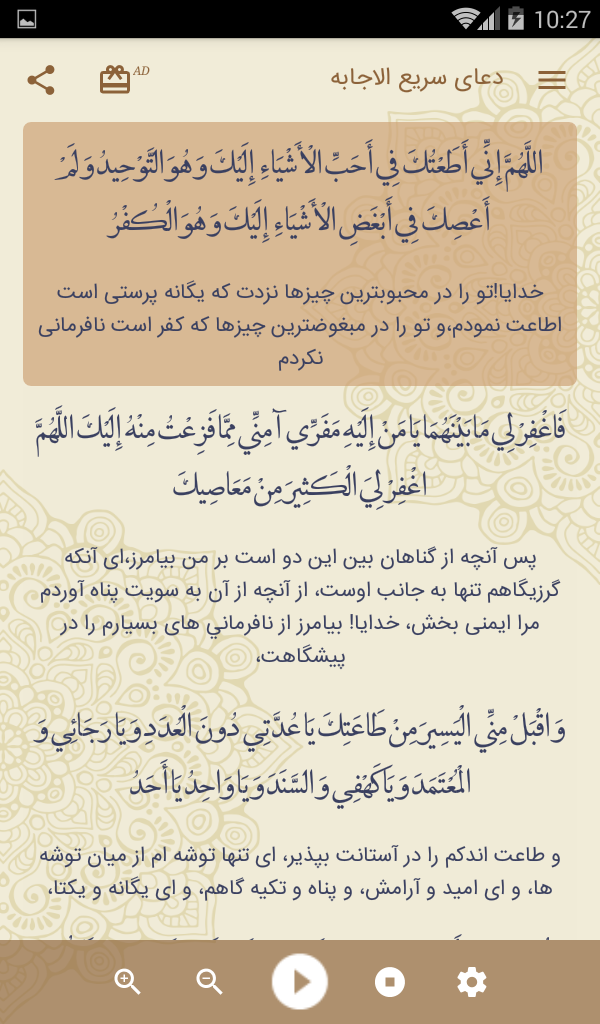 10:27
دعای سریع الاجابه
AD
اللَّهُمَّ إِنِّي أَطَعْتُكَ فِي أَحَبِّ الْأَشْيَاءِ إِلَيْكَ وَ هُوَ التَّوْحِيدُ وَ لَمْ
أَعْصِكَ فِي أَبْغَضِ الْأَشْيَاءِ إِلَيْكَ وَ هُوَ الْكُفْرُ
خدایا!تو را در محبوبترین چیزها نزدت که یگانه پرستی است
اطاعت نمودم،و تو را در مبغوضترین چیزها که کفر است نافرمانی
نکردم
فَاغْفِرْ لِي مَا بَيْنَهُمَا يَا مَنْ إِلَيْهِ مَفَرِّي آمِنِّي مِمَّا فَزِعْتُ مِنْهُ إِلَيْكَ اللَّهُمَّ
اغْفِرْ لِيَ الْكَثِيرَ مِنْ مَعَاصِيكَ
پس آنچه از گناهان بین این دو است بر من بیامرز،ای آنکه
گرزیگاهم تنها به جانب اوست، از آنچه از آن به سویت پناه آوردم
مرا ایمنی بخش، خدایا! بیامرز از نافرماني های بسیارم را در
پیشگاهت،
وَ اقْبَلْ مِنِّي الْيَسِيرَ مِنْ طَاعَتِكَ يَا عُدَّتِي دُونَ الْعُدَدِ وَ يَا رَجَائِي وَ
الْمُعْتَمَدَ وَ يَا كَهْفِي وَ السَّنَدَ وَ يَا وَاحِدُ يَا أَحَدُ
و طاعت اندکم را در آستانت بپذیر، ای تنها توشه ام از میان توشه
ها، و ای امید و آرامش، و پناه و تکیه گاهم، و ای یگانه و یکتا،